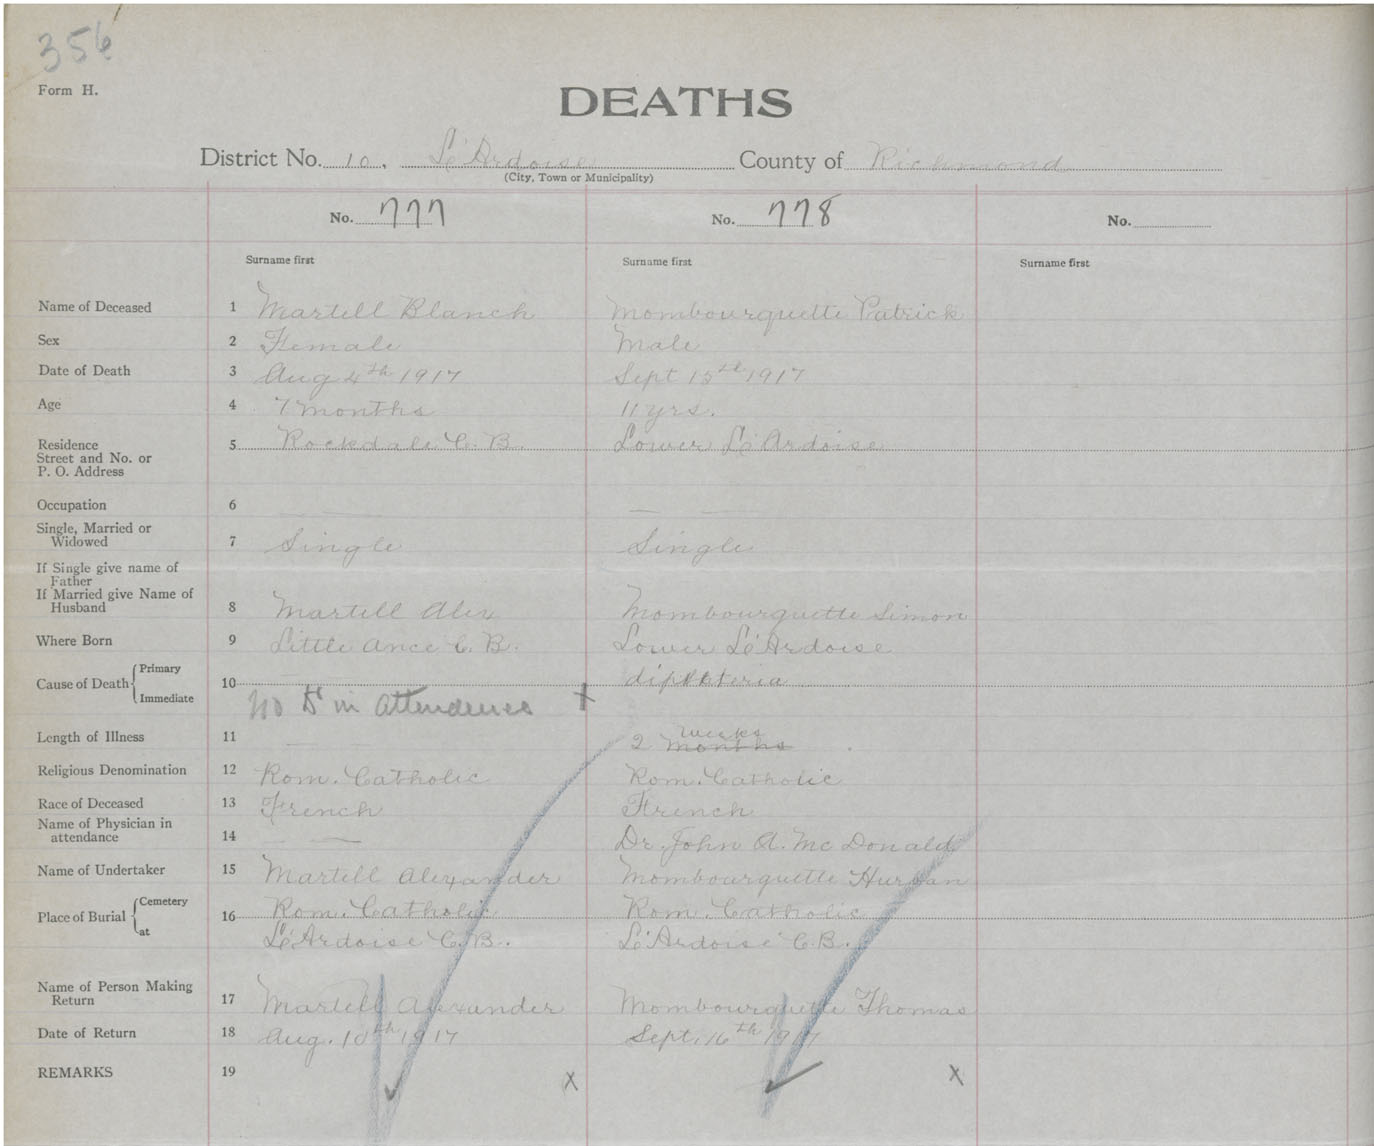 356
Form H.
DEATHS
District No. 10, Le'Ardoise County of Richmond
(City, Town or Municipality)
No. 777 No. 778 No.
Surname first Surname first Surname first
Name of Deceased 1 Martell Blanch Mombourquette Patrick
Sex 2 Female Male
Date of Death 3 Aug 4th 1917 Sept 15th 1917
Age 4 7 months 11 yrs.
Residence 5 Rockdale C. B. Lower Le'Ardoise
Street and No. or
P. O. Address
Occupation 6 — — — —
Single, Married or
Widowed 7 Single Single
If Single give name of
Father
If Married give Name of
Husband 8 Martell Alex Mombourquette Simon
Where Born 9 Little Ance C. B. Lower Le'Ardoise
Cause of Death Primary 10 —— diphteria
Immediate No Dr in attendence x
Length of Illness 11 — — 2 weeks months
Religious Denomination 12 Rom. Catholic Rom. Catholic
Race of Deceased 13 French French
Name of Physician in
attendance 14 — — Dr. John A. Mc Donald
Name of Undertaker 15 Martell Alexander Mombourquette
Place of Burial Cemetery 16 Rom. Catholic Rom. Catholic
at Le'Ardoise C. B. Le'Ardoise C. B.
Name of Person Making
Return 17 Martell Alexander Mombourquette Thomas
Date of Return 18 Aug. 10th 1917 Sept. 16th 1917
REMARKS 19 x x